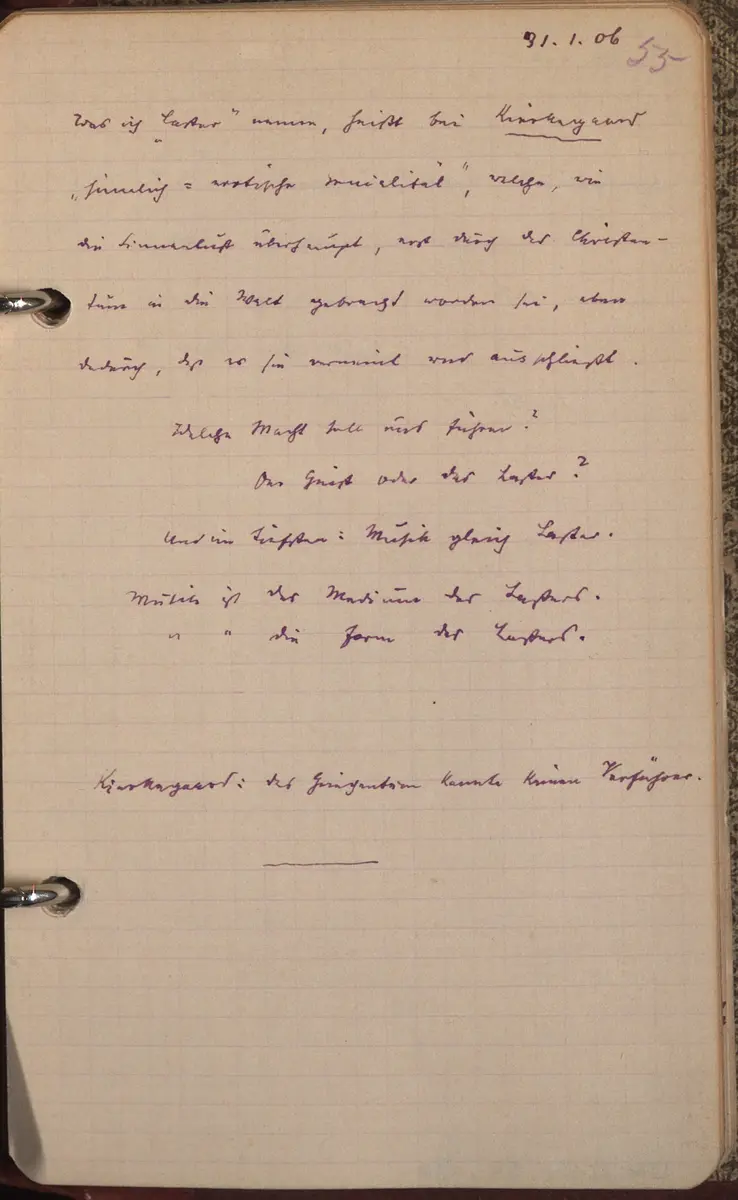 31.1.06 55
Was ich „Laster" nenne, heißt bei Kierkegaard
„sinnlich = erotische Genialität", welche, wie
die Sinnenlust überhaupt, erst durch das Christen-
tum in die Welt gebracht worden sei, eben
dadurch, daß es sie verneint und ausschließt.
Welche Macht soll uns führen?
Der Geist oder das Laster?
Und im tiefsten: Musik gleich Laster.
Musik ist das Medium des Lasters.
" " die Form des Lasters.
Kierkegaard: das Griechentum kannte keinen Verführer.